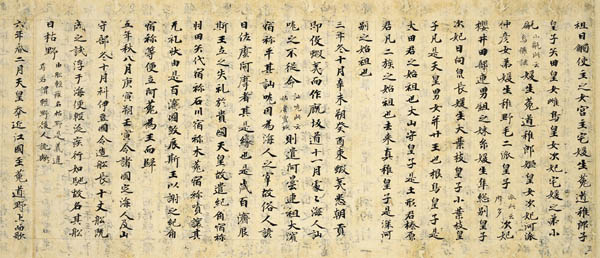 祖日觸使主之女宮主宅媛生菟道稚郎子
皇子矢田皇女雌鳥皇女次妃宅媛之弟小
甂媛生菟道稚郎姬皇女次妃河派
仲彦女弟媛生稚野毛二派皇子次妃
櫻井田部連男鉏之妹糸媛生隼総別皇子
次妃日向泉長媛生大葉枝皇子小葉枝皇
子凡是天皇男女并廿王也根鳥皇子是
大田君之始祖也大山守皇子是土形君榛原
君凡二族之始祖也去来真稚皇子是深河
別之始祖也
三年冬十月辛未朔癸酉東蝦夷悉朝貢
即役蝦夷而作厩坂道十一月處々海人訕
哤之不従命則遣阿曇連祖大濱
宿祢平其訕哤因為海人之宰故俗人諺
曰佐麼阿摩者其是縁也是歳百済辰
斯王立之失礼於貴國天皇故遣紀角宿祢
羽田矢代宿祢石川宿祢木菟宿祢嘖譲其
无礼状由是百済國殺辰斯王以謝之紀角
宿祢等便立阿花為王而歸
五年秋八月庚寅朔壬寅令諸國定海人及山
守部冬十月科伊豆國令造船長十丈船既
成之試浮于海便軽泛疾行如馳故名其船
曰枯野由船軽疾名枯野是義違焉若謂軽野後人訛歟
六年春二月天皇幸近江國至菟道野上而歌